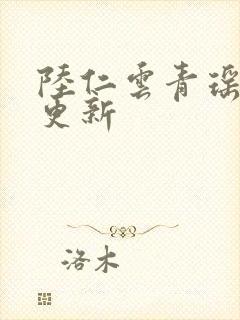 陸仁雲青瑶
更新
洛木